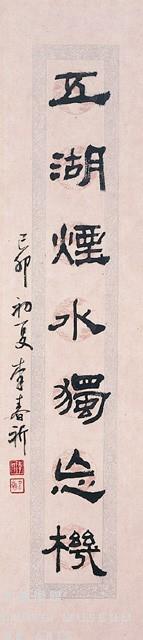 五湖煙水獨忘機
己卯初夏李春祈